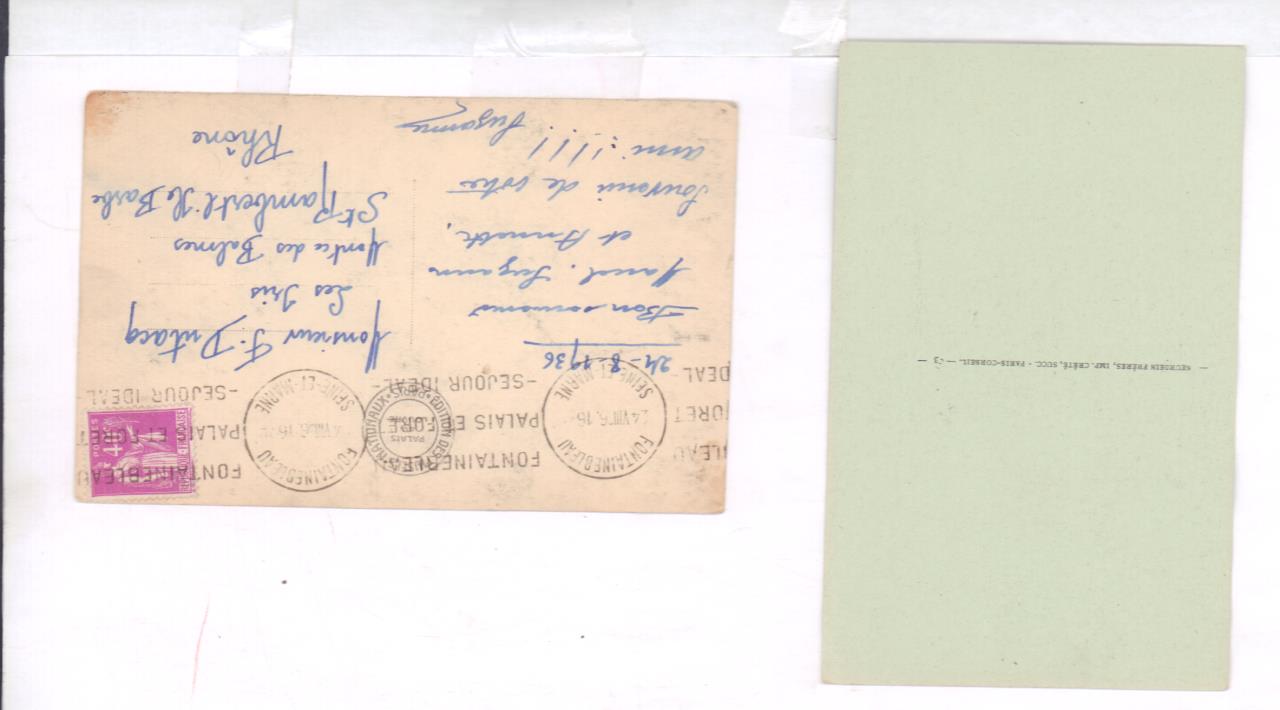 FONTAINEBLEAU
PALAIS ET FORET
-SEJOUR IDEAL-
FONTAINEBLEAU
24 VIII 36 16
SEINE-ET-MARNE
FONTAINEBLEAU
PALAIS ET FORET
-SEJOUR IDEAL-
FONTAINEBLEAU
SEINE-ET-MARNE
EDITION DES
NATIONAUX
PARIS
PALAIS
POSTES
REPUBLIQUE FRANÇAISE
24-8-1936
Bon souvenir
Marcel. Suzanne
et Annette,
Souvenir de votre
ami !!!!
Suzanne
Monsieur F. Dutacq
Les Iris
Montée des Balmes
St Rambert l. Ile Barbe
Rhône
— NEURDEIN FRÈRES, IMP. CRÉTÉ, SUCC. - PARIS-CORBEIL. —